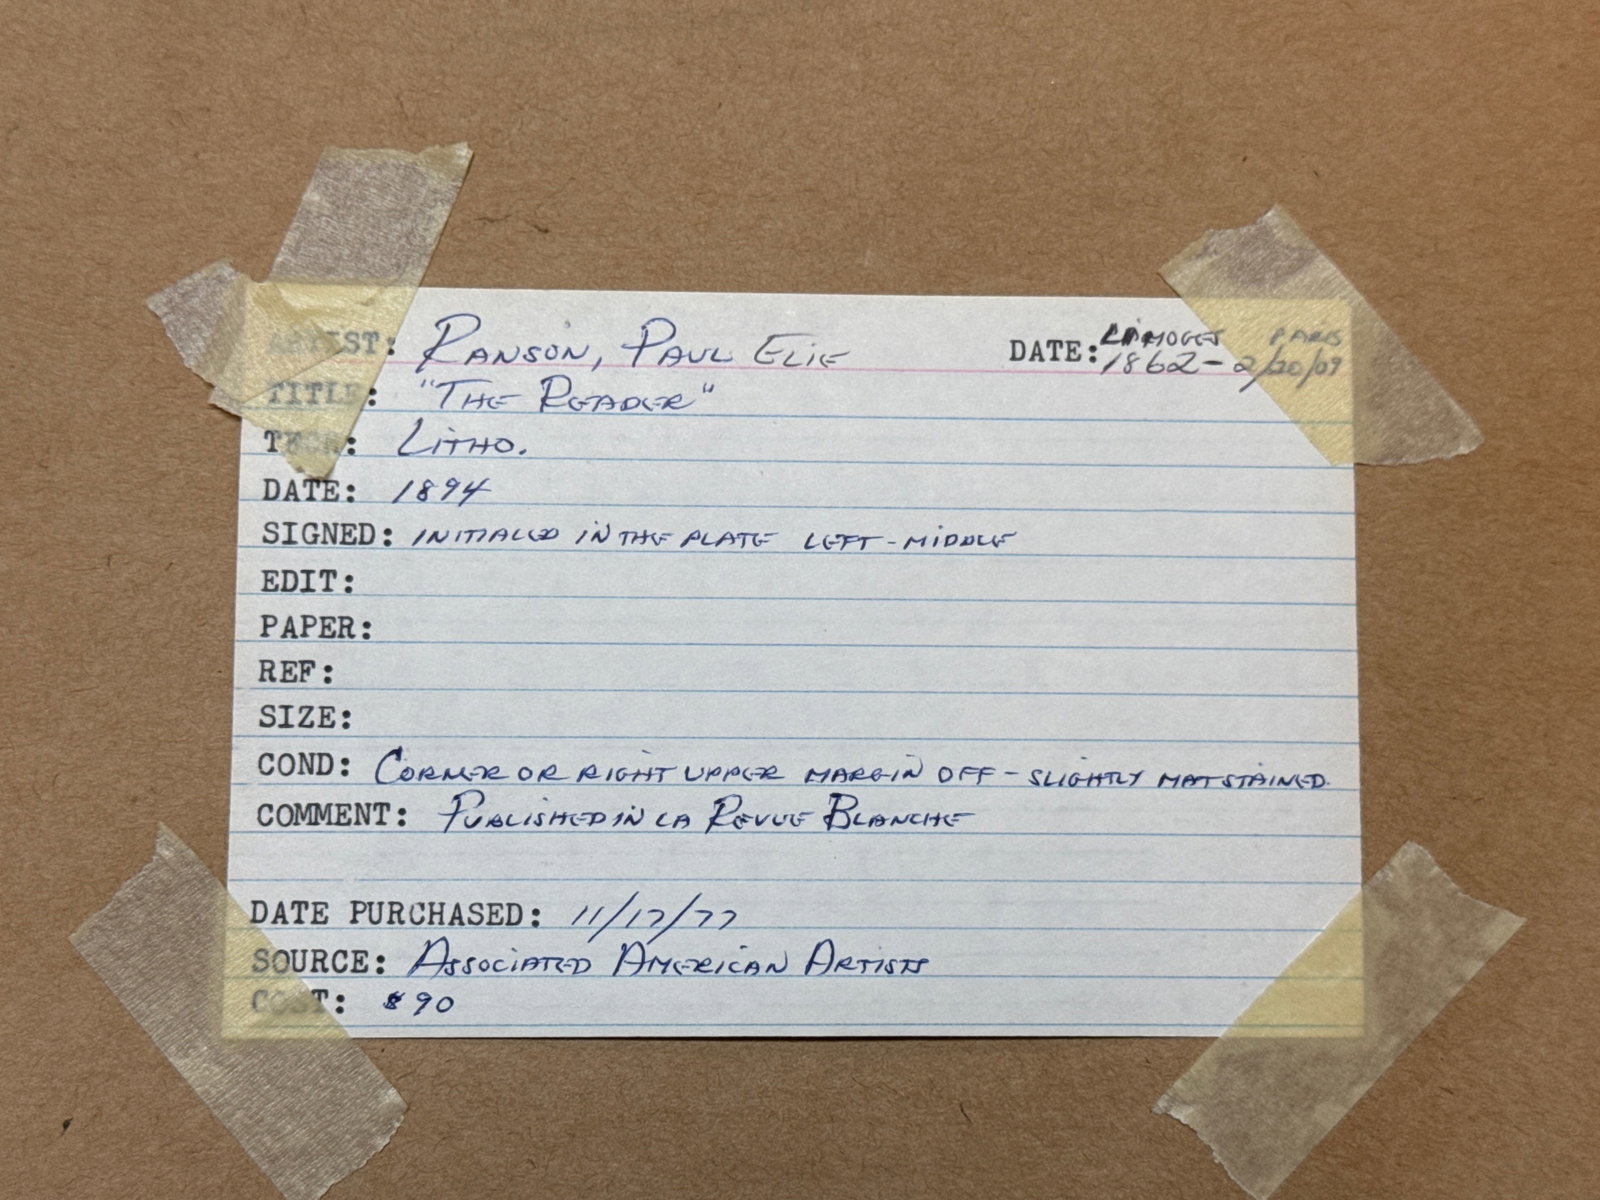 ARTIST: RANSON, PAUL ELIE DATE: LIMOGES PARIS
1862 - 2/20/09
TITLE: "THE READER"
TECH: LITHO.
DATE: 1894
SIGNED: INITIALED IN THE PLATE LEFT - MIDDLE
EDIT:
PAPER:
REF:
SIZE:
COND: CORNER OR RIGHT UPPER MARGIN OFF - SLIGHTLY MATSTAINED.
COMMENT: PUBLISHED IN LA REVUE BLANCHE
DATE PURCHASED: 11/17/77
SOURCE: ASSOCIATED AMERICAN ARTISTS
COST: $90